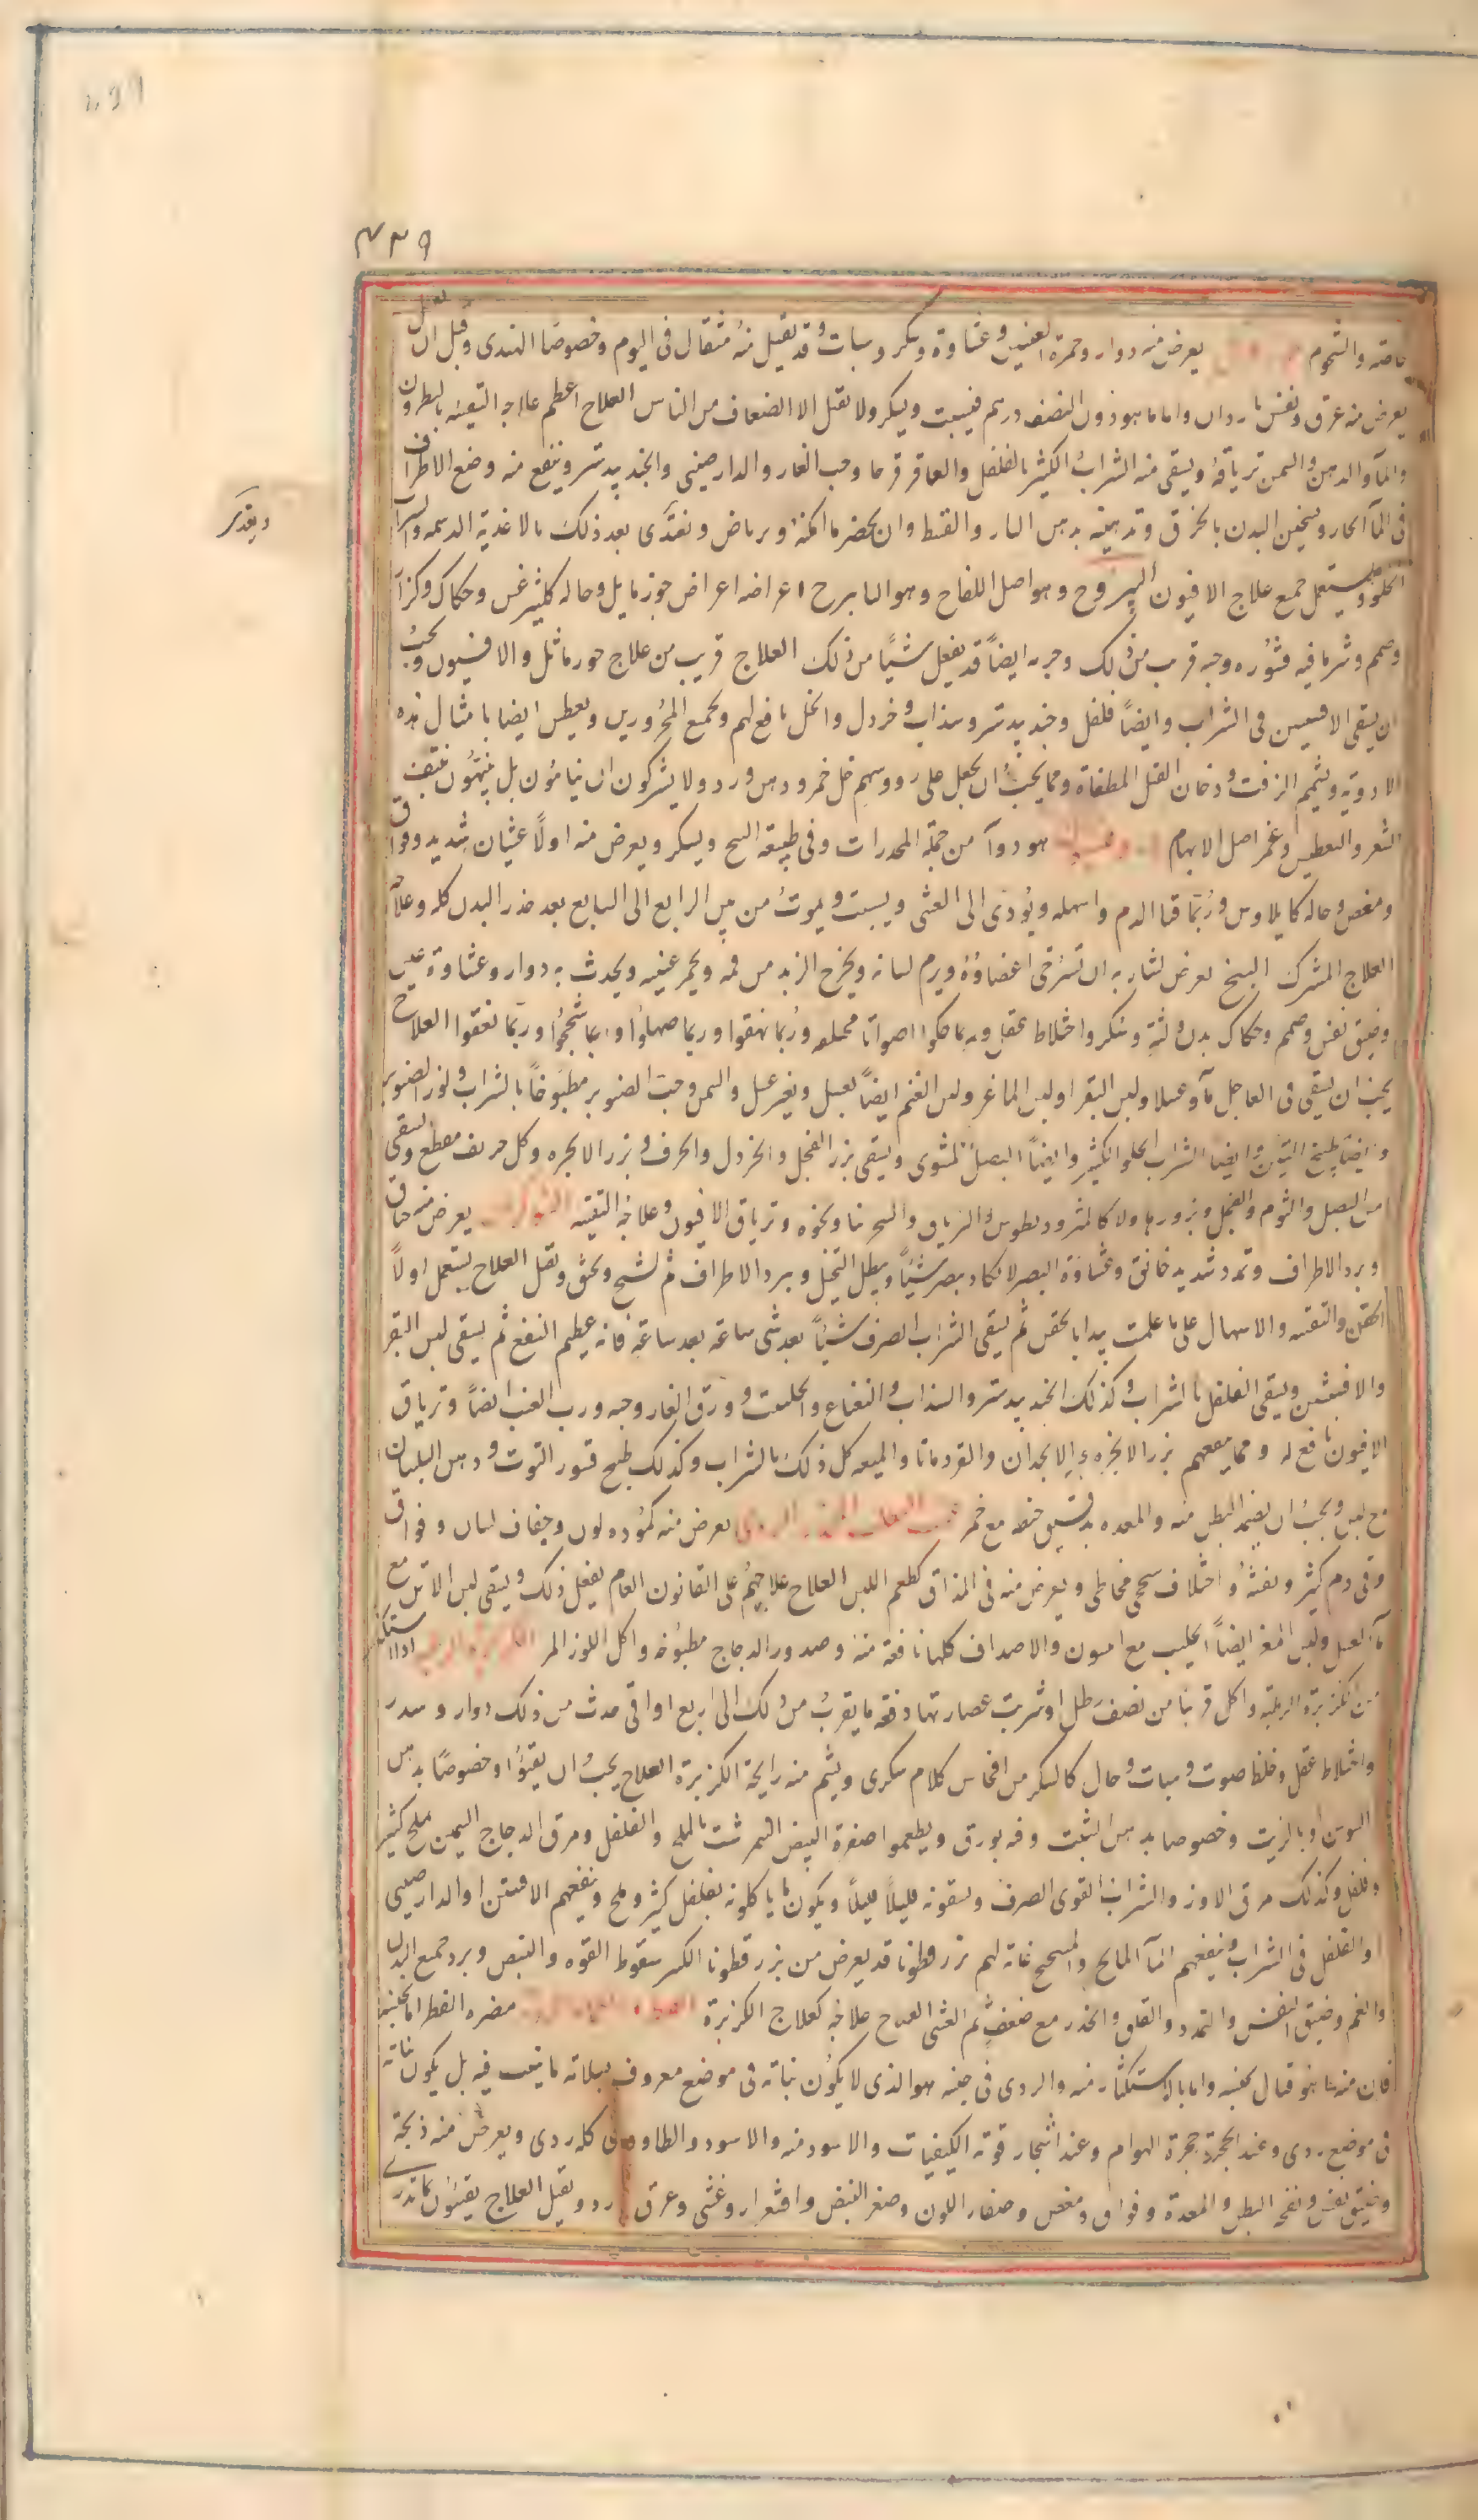 ٤٣٩
خاصة والشحوم يعرض منه دوار وحمرة العينين وغشاوة وسكر وسبات وقد يقتل منه مثقال فى اليوم وخصوصا الهندى وقبل ان يقتل
يعرض منه عرق ونفس باردان واما ما هو دون النصف درهم فيسبت ويسكر ولا يقتل الا الضعاف من الناس العلاج اعظم علاجه التقيئة بالنطرون
والمآ والدهن والسمن ترياقه ويسقى منه الشراب الكثير بالفلفل والعاقرقرحا وحب الغار والدارصينى والجندبيدستر وينفع منه وضع الاطراف
فى المآ الحار وتسخين البدن بالخرق وتدهينه بدهن البار والقسط وان يحضر ما امكنه ويرتاض ويغذى بعد ذلك بالاغذية الدسمة والشراب
الحلو ويستعمل جميع علاج الافيون اليبروح وهو اصل اللفاح وهو الماىرح اعراضه اعراض جوزمايل وحاله كليثرغس وحكاك وكزاز
وصمم وشر ما فيه قشوره وحبه قريب من ذلك وجرمه ايضاً قد يفعل شيئاً من ذلك العلاج قريب من علاج جوزماثل والافيون ويجب
ان يسقى الافسنتين فى الشراب وايضاً فلفل وجندبيدستر وسذاب وخردل والخل نافع لهم ولجميع المخدورين ويعطس ايضا بامثال هذه
الادوية ويشمهم الزفت ودخان الفتل المطفاة ومما يجب ان يجعل على رووسهم خل خمر ودهن ورد ولا يتركون ان يناموا بل ينبهون بنتف
الشعر والتعطيس وغمز اصل الابهام هو دوآ من جملة المخدرات وفى طبيعة البنج ويسكر ويعرض منه اولاً غثيان شديد وفواق
ومغص وحاله كايلاوس وربما قيا الدم واسهله ويؤدى الى الغشى ويسبت ويموت من بين الرابع الى السابع بعد خدر البدن كله وعلاجه
العلاج المشترك البنج يعرض لشاربه ان تسترخى اعضاؤه ويرم لسانه ويخرج الزبد من فمه ويحمر عينيه ويحدث به دوار وغشاوة عين
وضيق نفس وصمم وحكاك بدن ولثة وسكر واختلاط عقل وربما حكوا اصواتا مختلفة وربما نهقوا وربما صهلوا وربما شحجوا وربما نعقوا العلاج
يجب ان يسقى فى العاجل مآ وعسلا ولبن البقر او لبن الماعز ولبن الغنم ايضاً بعسل وبغير عسل والسمن وحب الصنوبر مطبوخاً بالشراب ولوز الصنوبر
وايضا طبيخ التين وايضا الشراب الحلو الكثير وايضاً البصل المشوى ويسقى بزر الفجل والخردل والحرف وبزر الانجره وكل حريف مقطع ويسقى
من البصل والثوم والفجل وبزورها ولا كالمثروديطوس والترياق والسحرنيا ونحوه وترياق الافيون وعلاجه التقيئه يعرض منه خناق
وبرد الاطراف وتمدد شديد خانق وغشاوة البصر لا يكاد يبصر شيئاً ويبطل التخيل ويبرد الاطراف ثم يشنج ويخنق ويقتل العلاج يستعمل اولاً
الحقن والتقيئه والاسهال على ما علمت يبدا بالحقن ثم يسقى الشراب الصرف شيئاً بعد شى ساعة بعد ساعة فانه عظيم النفع ثم يسقى لبن البقر
والافسنتين ويسقى الفلفل بالشراب وكذلك الجندبيدستر والسذاب والنعناع والحلتيت وورق الغار وحبه ورب العنب ايضاً وترياق
الافيون نافع له ومما ينفعهم بزر الانجره والانجدان والقردمانا والميعه كل ذلك بالشراب وكذلك طبيخ قشور التوت ودهن البلسان
مع لبن ويجب ان يضمد البطن منه والمعده بدقيق حنطه مع خمر يعرض منه كموده لون وجفاف لسان وفواق
وقى دم كثير ونفثه واختلاف سحجى مخاطى ويعرض منه فى المذاق كطعم اللبن العلاج علاجهم على القانون العام يفعل ذلك ويسقى لبن الاتن مع
مآ العسل ولبن المعز ايضاً الحليب مع انيسون والاصداف كلها نافعة منه وصدور الدجاج مطبوخه واكل اللوز المر اذا استكثر
من الكزبرة الرطبة واكل قريبا من نصف رطل او شربت عصارتها دفعة ما يقرب من ذلك الى اربع اواقى حدث من ذلك دوار وسدر
واختلاط عقل وغلظ صوت وسبات وحال كالسكر من افحاش كلام سكرى ويشم منه رايحة الكزبرة العلاج يجب ان يقيؤا وخصوصاً بدهن
السوسن او بالزيت وخصوصا بدهن الشبت وفه بورق ويطعموا صفرة البيض النيمرشت بالملح والفلفل ومرق الدجاج السمين بملح كثير
وفلفل وكذلك مرق الاوز والشراب القوى الصرف ويسقونه قليلاً قليلاً ويكون ما ياكلونه بفلفل كثير وملح وينفعهم الافسنتين او الدارصينى
والفلفل فى الشراب وينفعهم المآ المالح والمبيختج غاية لهم بزر قطونا قد يعرض من بزر قطونا الكثير سقوط القوه والنبض وبرد جميع البدن
والغم وضيق النفس والتمدد والقلق والخدر مع ضعف ثم الغشى العلاج علاجه كعلاج الكزبرة مضره الفطر اما بجنسه
فان منه ما هو قتال بجنسه واما بالاستكثار منه والردى فى جنسه هو الذى لا يكون نباته فى موضع معروف بسلامة ما ينبت فيه بل يكون نباته
فى موضع ردى وعند الجحرة جحرة الهوام وعند اشجار قوته الكيفيات والاسود منه والاسود والطاووسى كله ردى ويعرض منه ذبحة
وضيق نفس ونفخ البطن والمعدة وفواق ومغص وصفار اللون وصغر النبض واقشعرار وغشى وعرق بارد ويقتل العلاج يقيئون بماتدرى